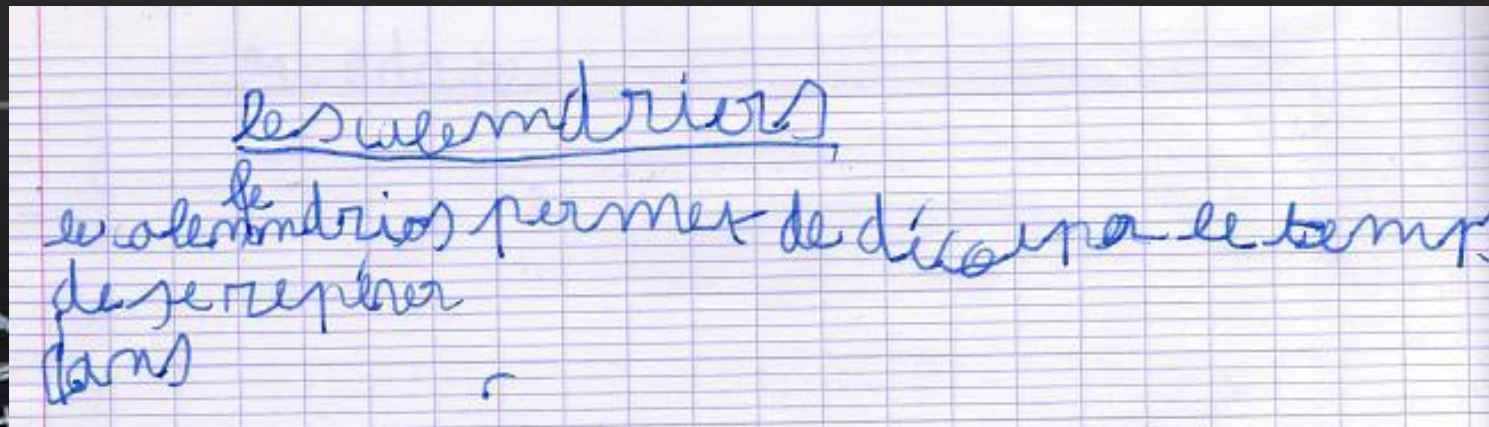 les calemdriers
le
le calemndrios permet de découpa le temps
de se repérer
dans